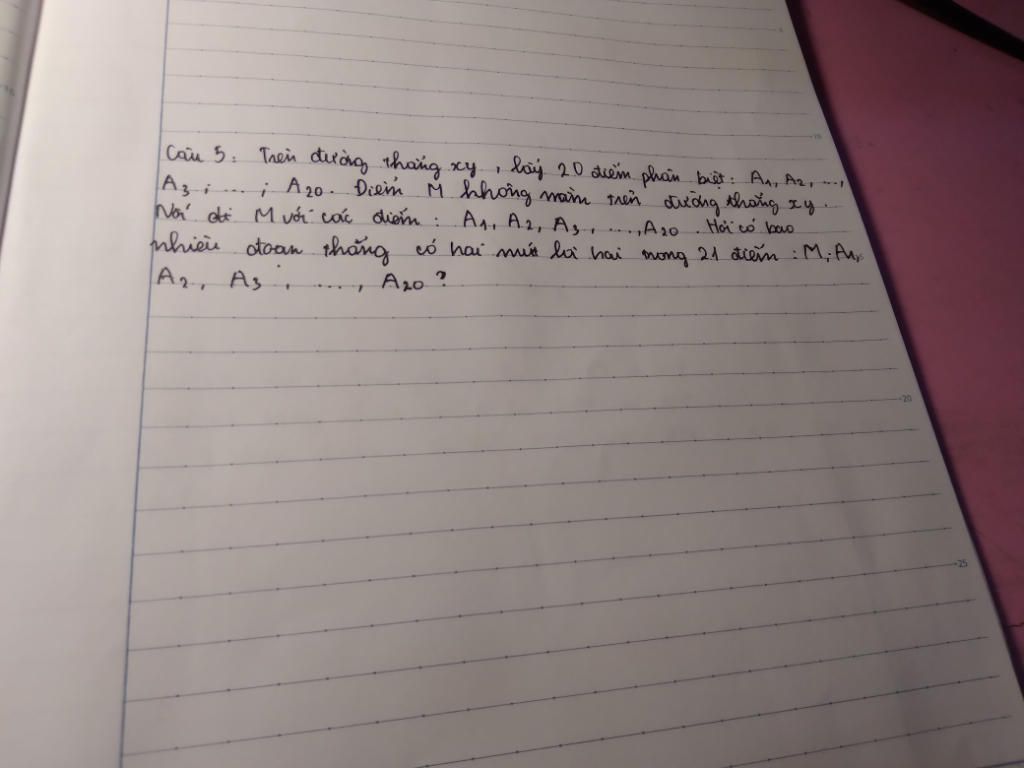 Câu 5: Trên đường thẳng xy, lấy 20 điểm phân biệt: A1, A2, ...,
A3; ...; A20. Điểm M không nằm trên đường thẳng xy.
Nối M với các điểm: A1, A2, A3, ..., A20. Hỏi có bao
nhiêu đoan thẳng có hai mút là hai trong 21 điểm: M; A1,
A2, A3, ..., A20?
10
20
25